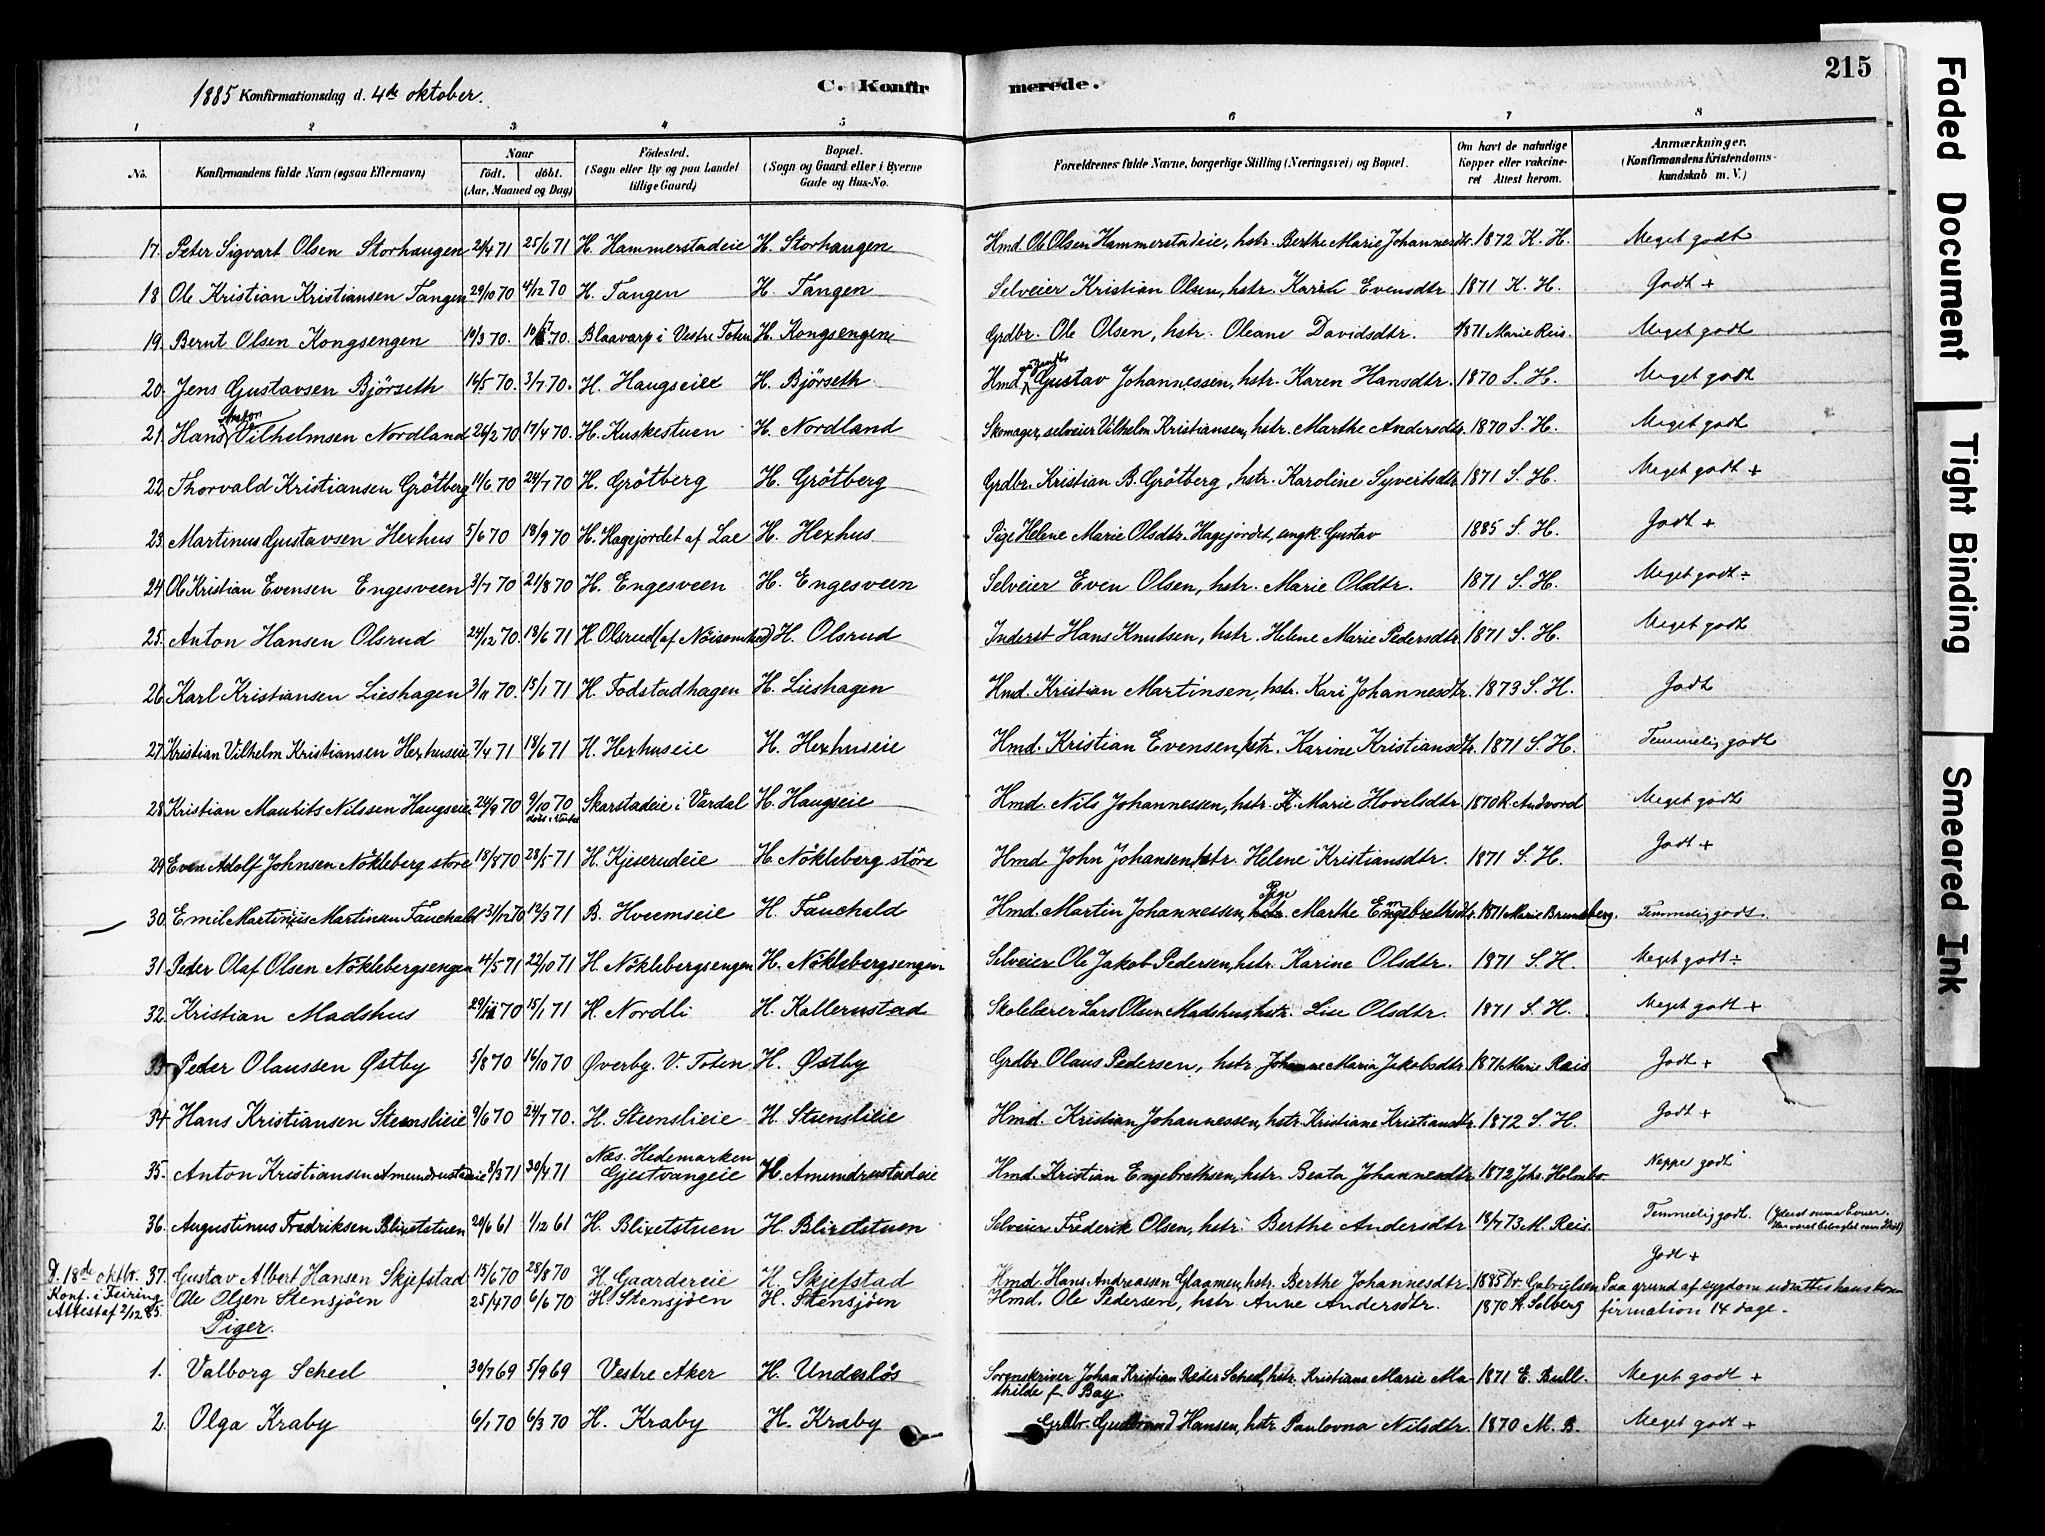 215
1885 Konfirmationsdag d. 4de oktober.
C. Konfirmerede.
1 2 3 4 5 6 7 8
No. Konfirmandens fulde Navn (ogsaa Efternavn) Naar Födt. döbt. (Aar, Maaned og Dag) Födested. (Sogn eller By og paa Landet tillige Gaard) Bopæl. (Sogn og Gaard eller i Byerne Gade og Hus-No. Forældrenes fulde Navne, borgerlige Stilling (Næringsvei) og Bopæl. Om havt de naturlige Kopper eller vakcineret Attest herom. Anmærkninger. (Konfirmandens Kristendomskundskab m. V.)
17. Peter Sigvart Olsen Storhaugen 24/4 71 25/6 71 H. Hammerstadeie H. Storhaugen Hmd. Ole Olsen Hammerstadeie, hstr. Berthe Marie Johannesdtr. 1872 K. H. Meget godt
18 Ole Kristian Kristiansen Tangen 29/10 70 4/12 70 H. Tangen H. Tangen Selveier Kristian Olsen, hstr. Karen Evensdtr 1871 K. H. Godt +
19. Bernt Olsen Kongsengen 10/3 70. 70. Blaavarp i Vestre Toten H. Kongsengen Grdbr. Ole Olsen, hstr. Oleane Davidsdtr. 1871 Marie Reis. Meget godt
20. Jens Gustavsen Björseth 16/5 70. 3/7 70. H. Haugseie H. Björseth Hmd. Gustav Johannessen, hstr. Karen Hansdtr. 1870 S. H. Meget godt
21. Hans Anton Vilhelmsen Nordland 26/2 70 17/4 70. H. Kuskestuen H. Nordland Skomager, selveier Vilhelm Kristiansen, hstr. Marthe Andersdtr. 1870 S. H. Meget godt
22 Thorvald Kristiansen Grötberg 11/6 70 24/7 70 H. Grötberg H. Grötberg Grdbr. Kristian B. Grötberg, hstr. Karoline Syvertsdtr 1871 S. H. Meget godt +
23. Martinus Gustavsen Hexhus 5/6 70 18/9 70 H. Hagejordet af Lae H. Hexhus Pige Helene Marie Olsdtr. Hagejordet, ungk. Gustav 1885 S. H. Godt +
24 Ole Kristian Evensen Engesveen 3/7 70 21/8 70 H. Engesveen H. Engesveen Selveier Even Olsen, hstr. Marie Olsdtr. 1871 S. H. Meget godt ÷
25. Anton Hansen Olsrud 24/12 70. 18/6 71 H. Olsrud (af Nöisomhed) H. Olsrud Inderst Hans Knutsen, hstr. Helene Marie Pedersdtr. 1871 S. H. Meget godt
26. Karl Kristiansen Lieshagen 3/11 70. 15/1 71 H. Fodstadhagen H. Lieshagen Hmd. Kristian Martinsen, hstr. Kari Johannesdtr. 1873 S. H. Godt
27. Kristian Vilhelm Kristiansen Hexhuseie 7/4 71 18/6 71 H. Hexhuseie H. Hexhuseie Hmd. Kristian Evensen, hstr. Karine Kristiansdtr. 1871 S. H. Temmelig godt
28. Kristian Maurits Nilssen Haugseie 24/9 70 9/10 70 Skarstadeie i Vardal H. Haugseie Hmd. Nils Johannessen, hstr. Marie Hovelsdtr. 1870 R. Andvord Meget godt
29. Even Adolf Johnsen Nökleberg store 18/8 70 28/5 71 H. Kjiserudeie H. Nökleberg store Hmd. John Johansen, hstr. Helene Kristiansdtr. 1871 S. H. Godt +
30. Emil Martinius Martinsen Fauchald 31/12 70 19/3 71 B. Hveemseie H. Fauchald Hmd. Martin Johannessen, Pige Marthe Engebrethsdtr. 1871 Marie Brunsberg. Temmelig godt.
31 Peder Olaf Olsen Nöklebergsengen 4/5 71 22/10 71 H. Nöklebergsengen H. Nöklebergsengen Selveier Ole Jakob Pedersen, hstr. Karine Olsdtr. 1871 S. H. Meget godt ÷
32. Kristian Madshus 29/11 70 15/1 71 H. Nordli H. Kallerustad Skolelærer Lars Olsen Madshus, hstr. Lise Olsdtr. 1871 S. H. Meget godt +
33. Peder Olaussen Østby 5/8 70 16/10 70 Øverby. V. Toten H. Østby Grdbr. Olaus Pedersen, hstr. Johanne Maria Jakobsdtr 1871 Marie Reis Godt +
34 Hans Kristiansen Steenslieie 9/6 70 24/7 70. H. Steenslieie H. Steenslieie Hmd. Kristian Johannessen, hstr. Kristiane Kristiansdtr. 1872 S. H. Godt +
35. Anton Kristiansen Amundrustadeie 8/3 71 30/4 71 Næs. Hedemarken Gjestvangeie H. Amundrustadeie Hmd. Kristian Engebrethsen, hstr. Beata Johannesdtr. 1872 Johs. Holmbo. Neppe godt
36. Augustinus Fredriksen Blixetstuen 20/6 61 1/12 61 H. Blixetstuen H. Blixetstuen Selveier Frederik Olsen, hstr. Berthe Andersdtr 18/7 73 M. Reis Temmelig godt.
D. 18de oktbr. 37. Gustav Albert Hansen Skjefstad 15/6 70 28/8 70 H. Gaardereie H. Skjefstad Hmd. Hans Andreassen Glaamen, hstr. Berthe Johannesdtr. 1885 Dr. Gabrielsen Godt + Paa grund af sygdom udsattes hans kon-
Konf. i Feiring Attest af 2/12 85. Ole Olsen Stensjöen 25/4 70 6/6 70 H. Stensjöen H. Stensjöen Hmd. Ole Pedersen, hstr. Anne Andersdtr. 1870 K. Solberg firmation 14 dage.
Piger.
1. Valborg Scheel 30/7 69 5/9 69 Vestre Aker H. Undeslös Sorenskriver Johan Kristian Reder Scheel, hstr. Kristiane Marie Ma- 1871 E. Bull. Meget godt +
thilde f. Bay.
2. Olga Kraby 6/1 70 6/3 70 H. Kraby H. Kraby Grdbr. Gudbrand Hansen, hstr. Paulovna Nilsdtr. 1870 M. B. Meget godt +
Faded Document
Tight Binding
Smeared Ink